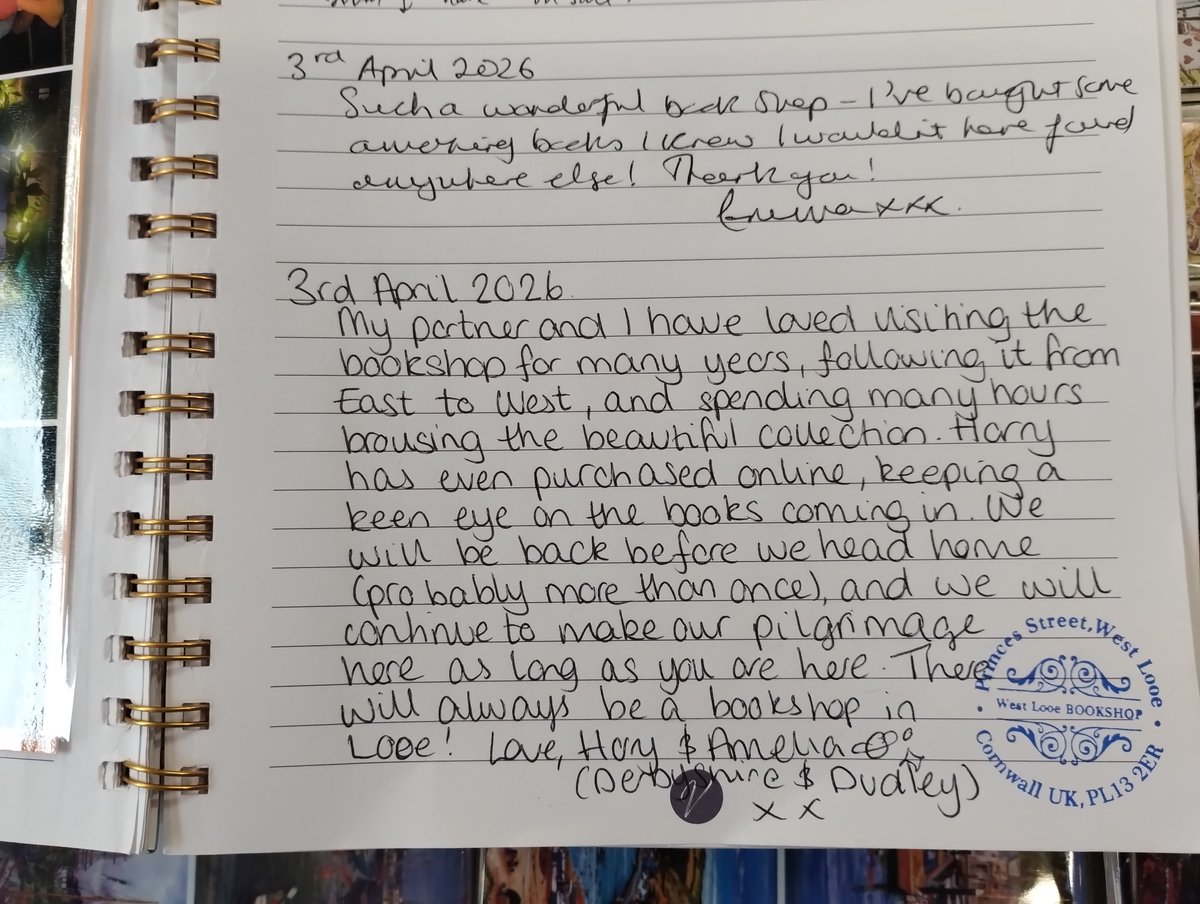 3rd April 2026
Such a wonderful book shop - I've bought some
amazing books I knew I wouldn't have found
anywhere else! Thank you!
Emma xxx.
3rd April 2026.
My partner and I have loved visiting the
bookshop for many years, following it from
East to West, and spending many hours
browsing the beautiful collection. Harry
has even purchased online, keeping a
keen eye on the books coming in. We
will be back before we head home
(probably more than once), and we will
continue to make our pilgrimage
here as long as you are here. There
will always be a bookshop in
Looe! Love, Harry & Amelia
(Derbyshire & Dudley)
x x
Princes Street, West Looe
West Looe BOOKSHOP
Cornwall UK, PL13 2ER